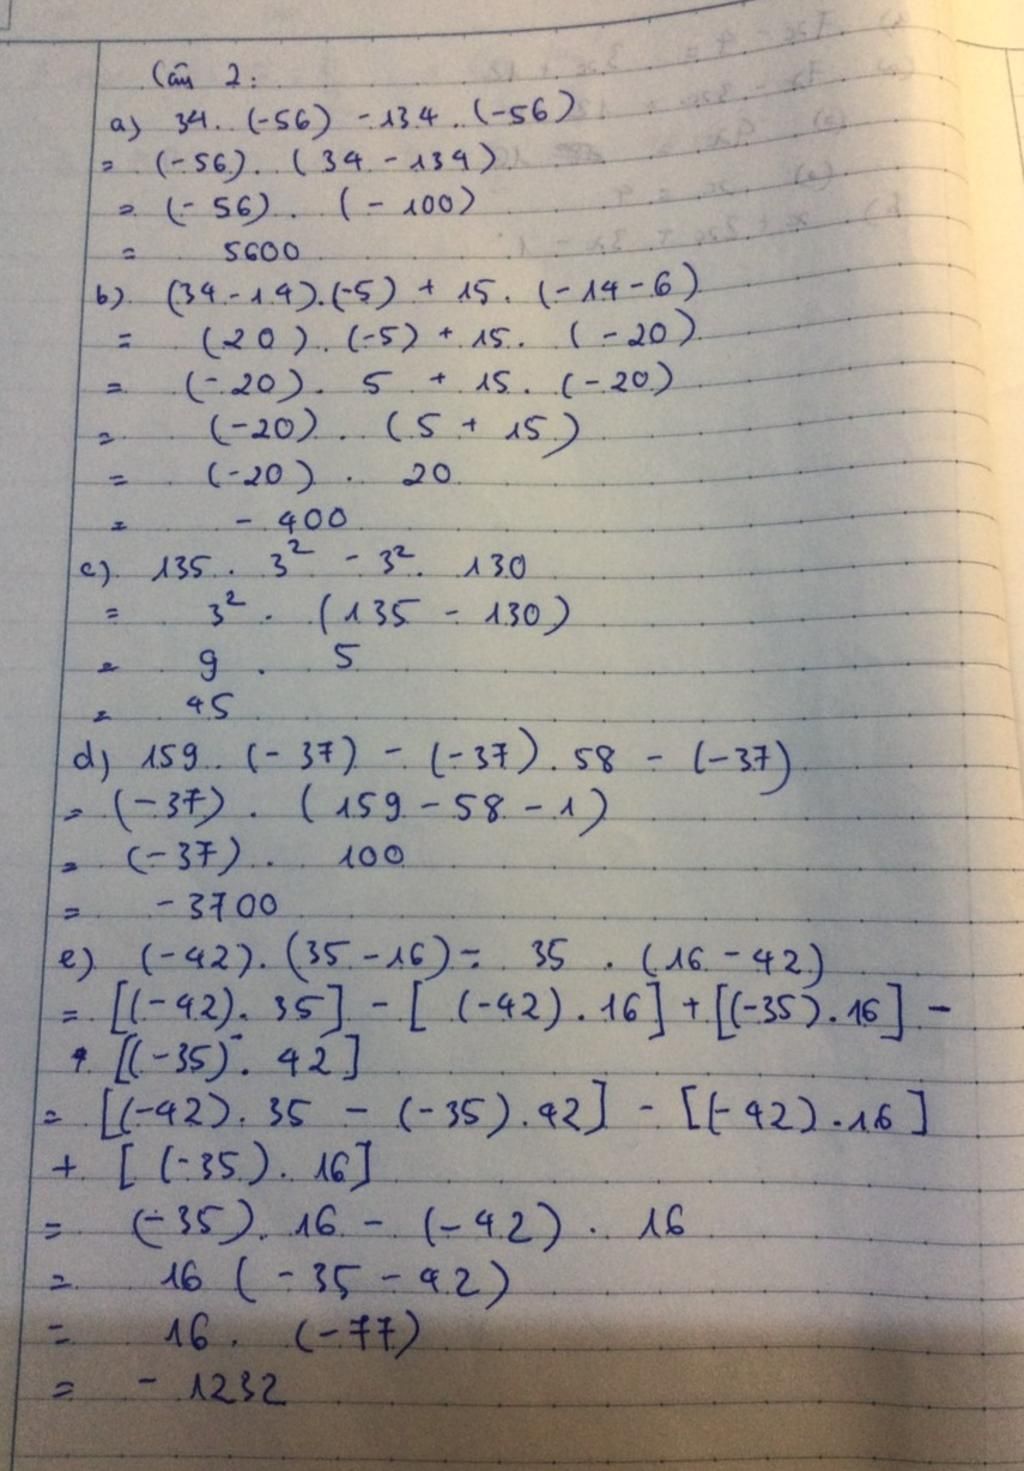 Câu 2:
a) 34. (-56) - 134. (-56)
= (-56). (34 - 134)
= (-56). (-100)
= 5600
b) (34-14).(-5) + 15. (-14-6)
= (20). (-5) + 15. (-20)
= (-20). 5 + 15. (-20)
= (-20). (5 + 15)
= (-20). 20
= - 400
c) 135. 3² - 3². 130
= 3². (135 - 130)
= 9. 5
= 45
d) 159. (-37) - (-37). 58 - (-37)
= (-37). (159 - 58 - 1)
= (-37). 100
= -3700
e) (-42). (35-16) - 35. (16-42)
= [(-42). 35] - [(-42). 16] + [(-35). 16] -
[(-35). 42]
= [(-42). 35 - (-35). 42] - [(-42). 16]
+ [(-35). 16]
= (-35). 16 - (-42). 16
= 16 (-35 - 42)
= 16. (-77)
= - 1232